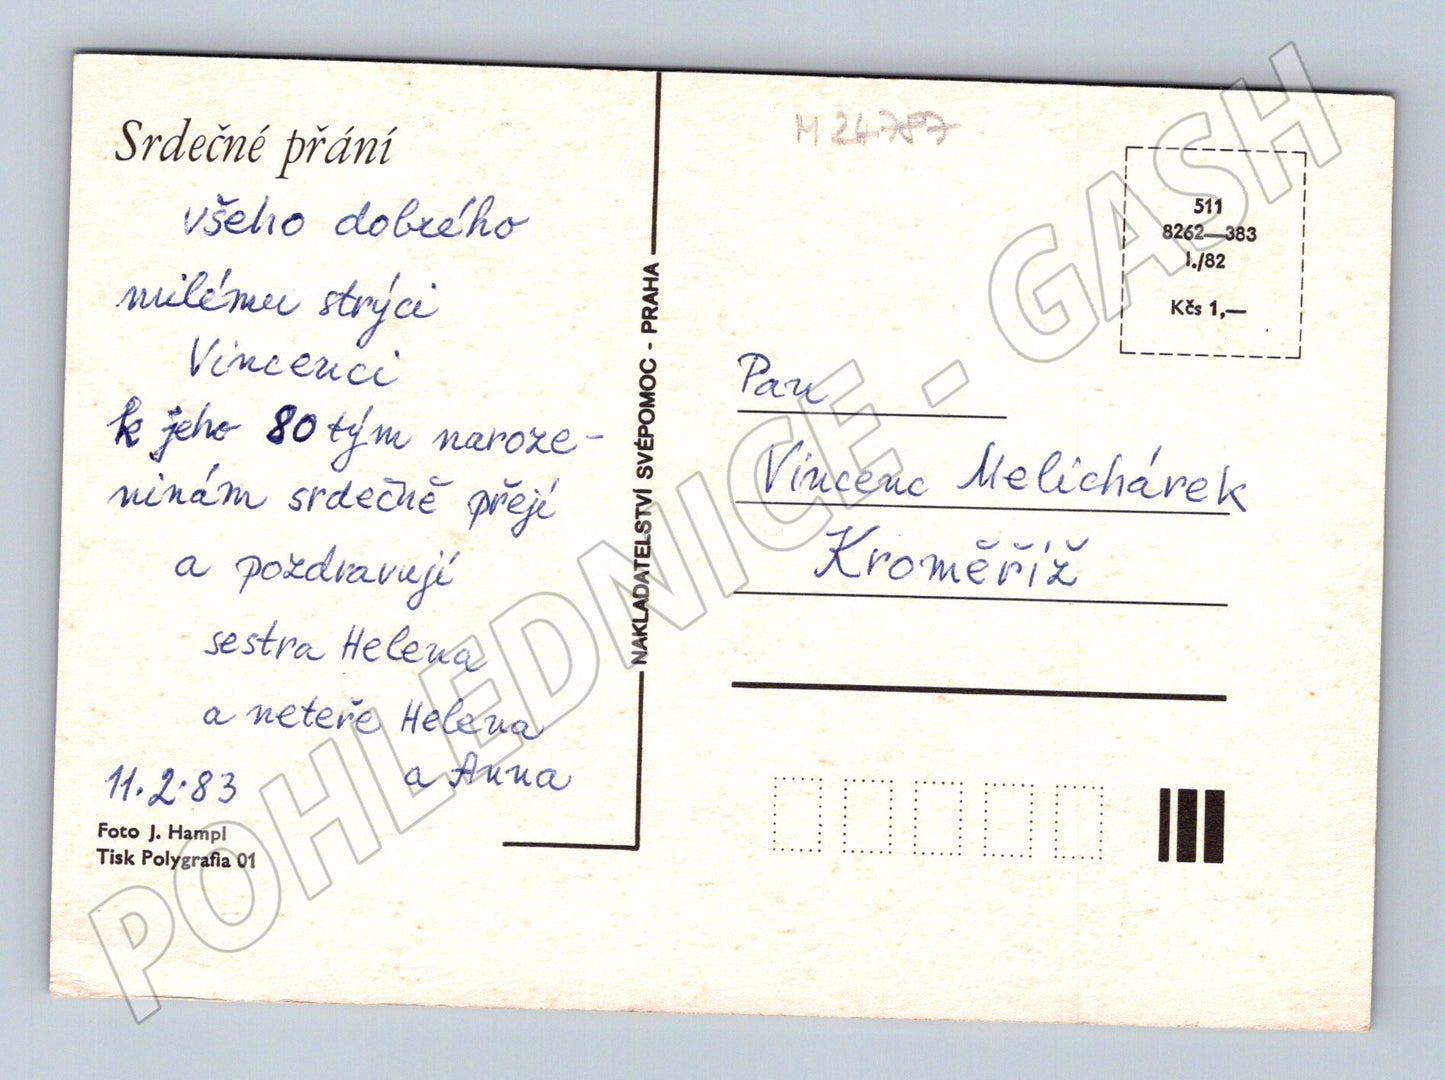 Srdečné přání
všeho dobrého
milému strýci
Vincenci
k jeho 80tým naroze-
ninám srdečně přejí
a pozdravují
sestra Helena
a neteře Helena
a Anna
11.2.83
Foto J. Hampl
Tisk Polygrafia 01
NAKLADATELSTVÍ SVÉPOMOC - PRAHA
M 24787
511
8262—383
I./82
Kčs 1,—
Pan
Vincenc Melichárek
Kroměříž
POHLEDNICE - GASH